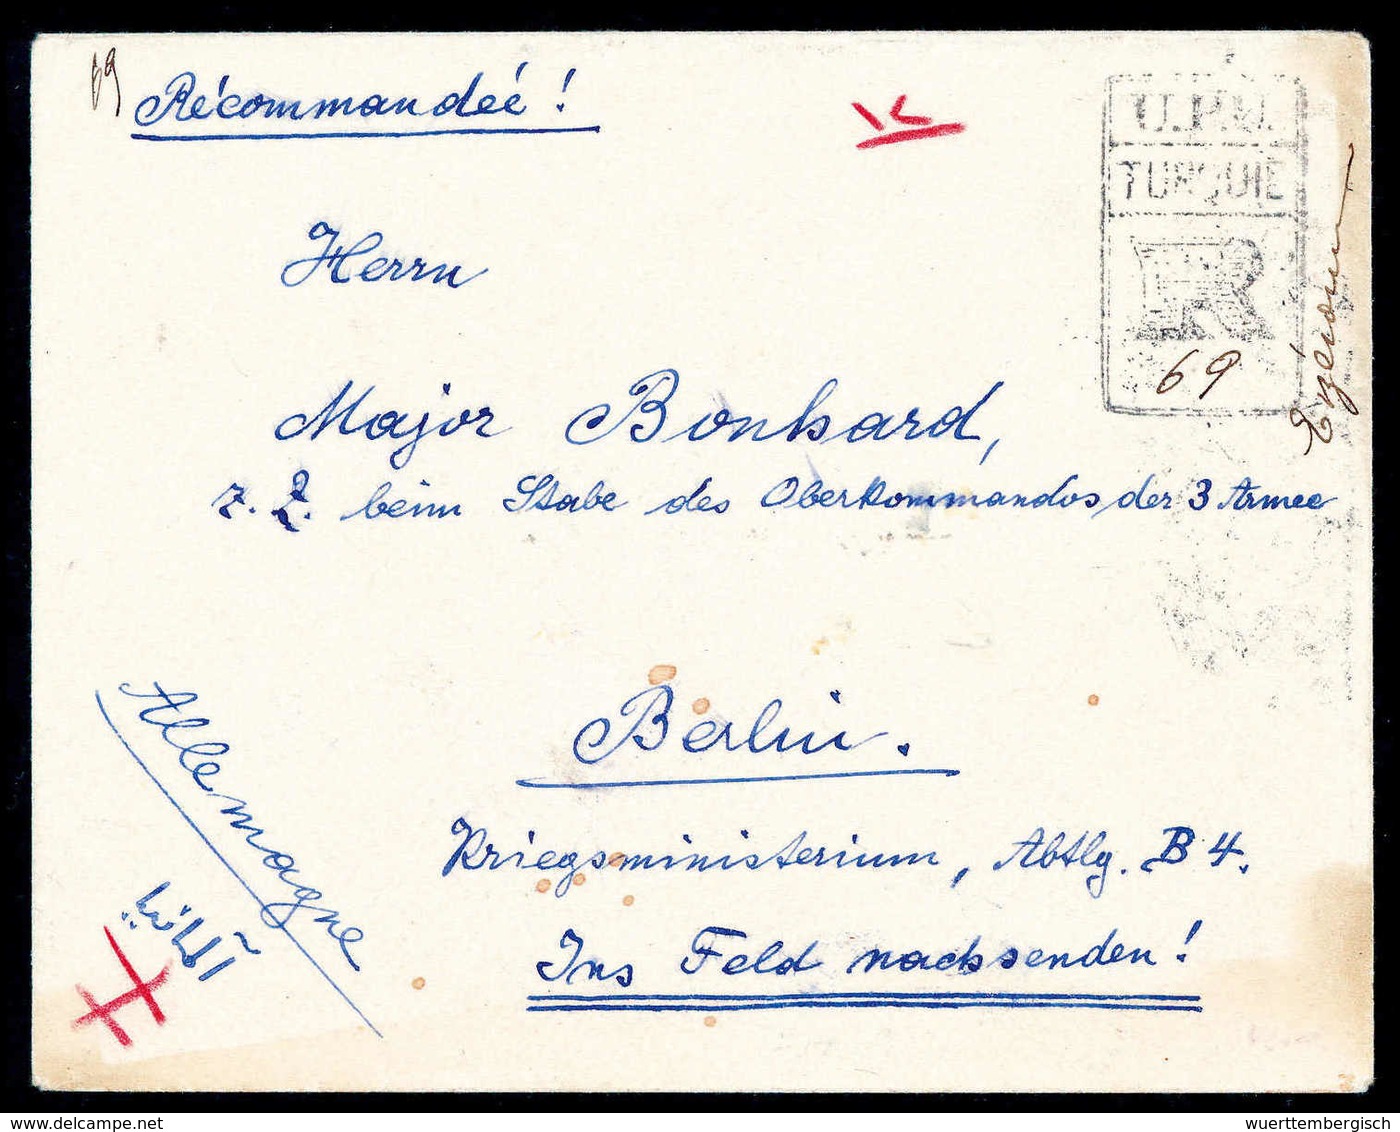 69
Récommandeé!
U.P.U.
TURQUIE
R
69
Erzéroum
Herrn
Major Bonhard,
z. Z. beim Stabe des Oberkommandos der 3 Armee
Berlin.
Kriegsministerium, Abtlg. B 4.
Ins Feld nachsenden!
Allemagne
آلمانيا
delcampe.net
wuerttembergisch